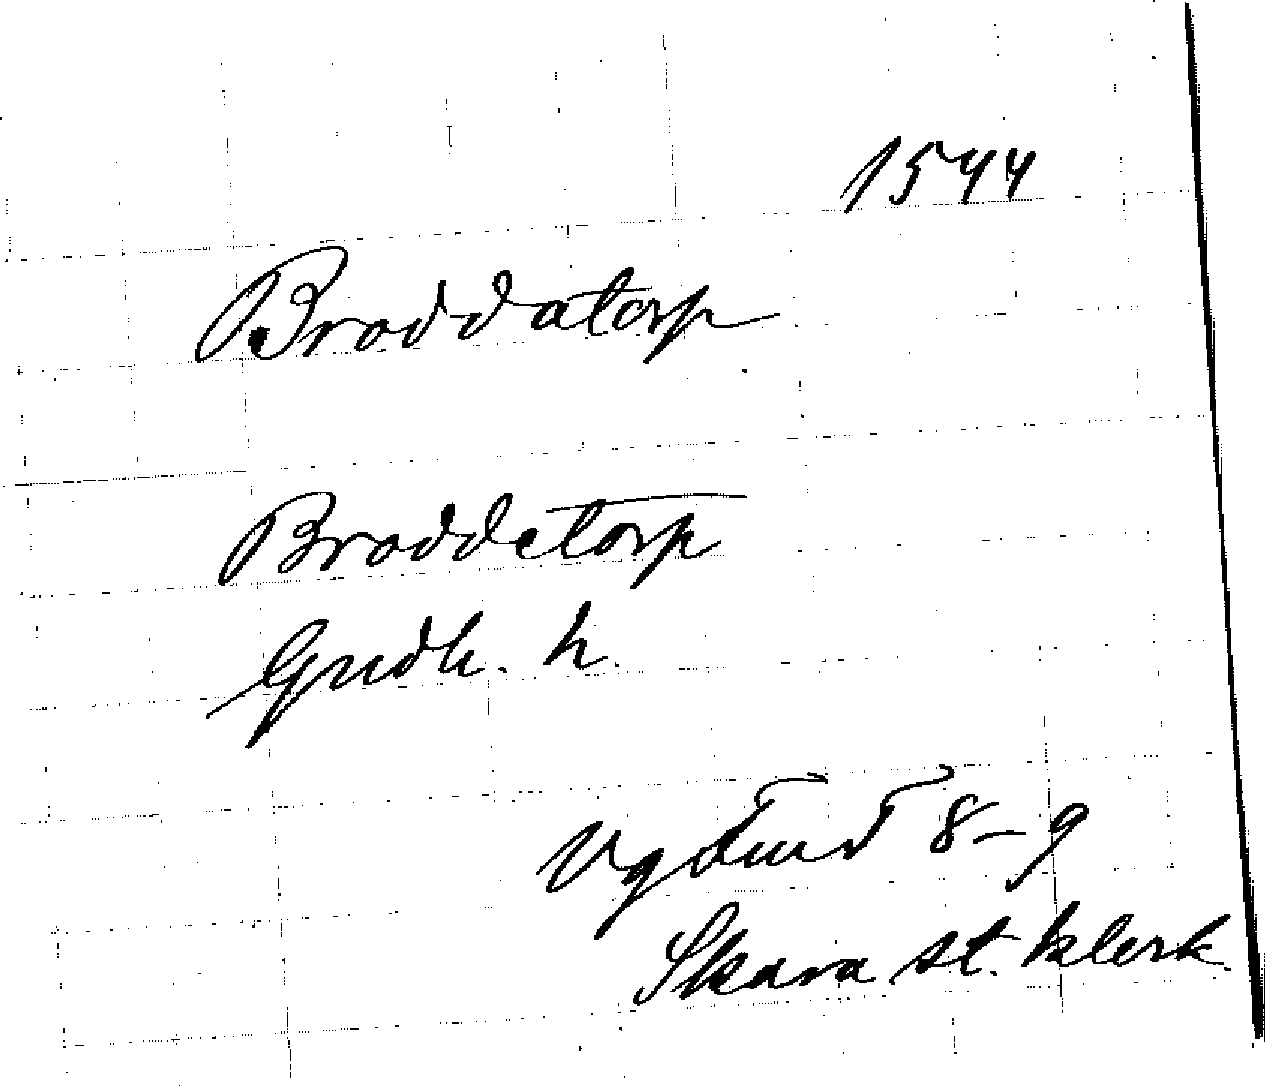 1544
Broddatorp
Broddetorp
Gudh. h.
8-9
Skara st. klerk.